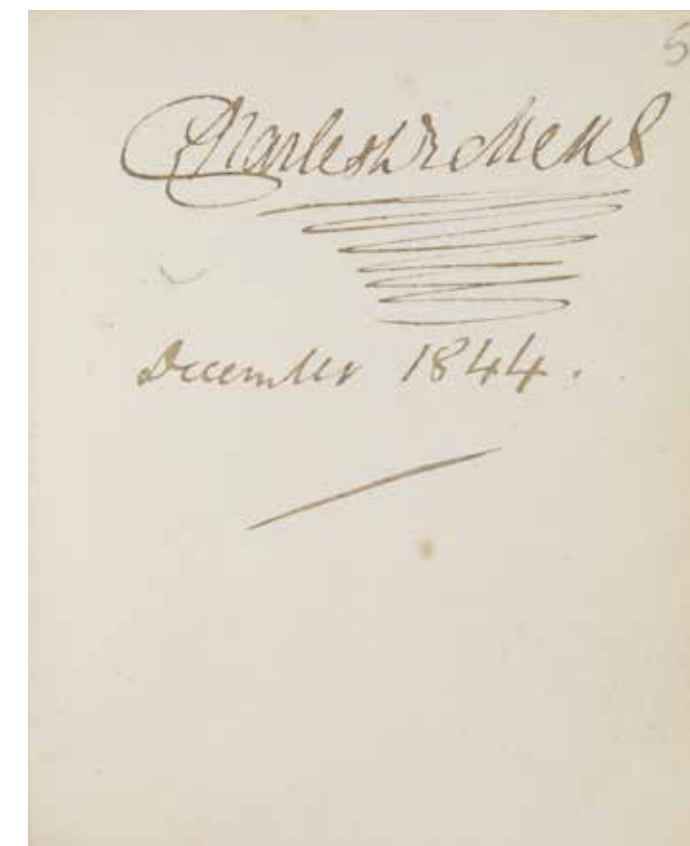 5
Charles Dickens
December 1844.